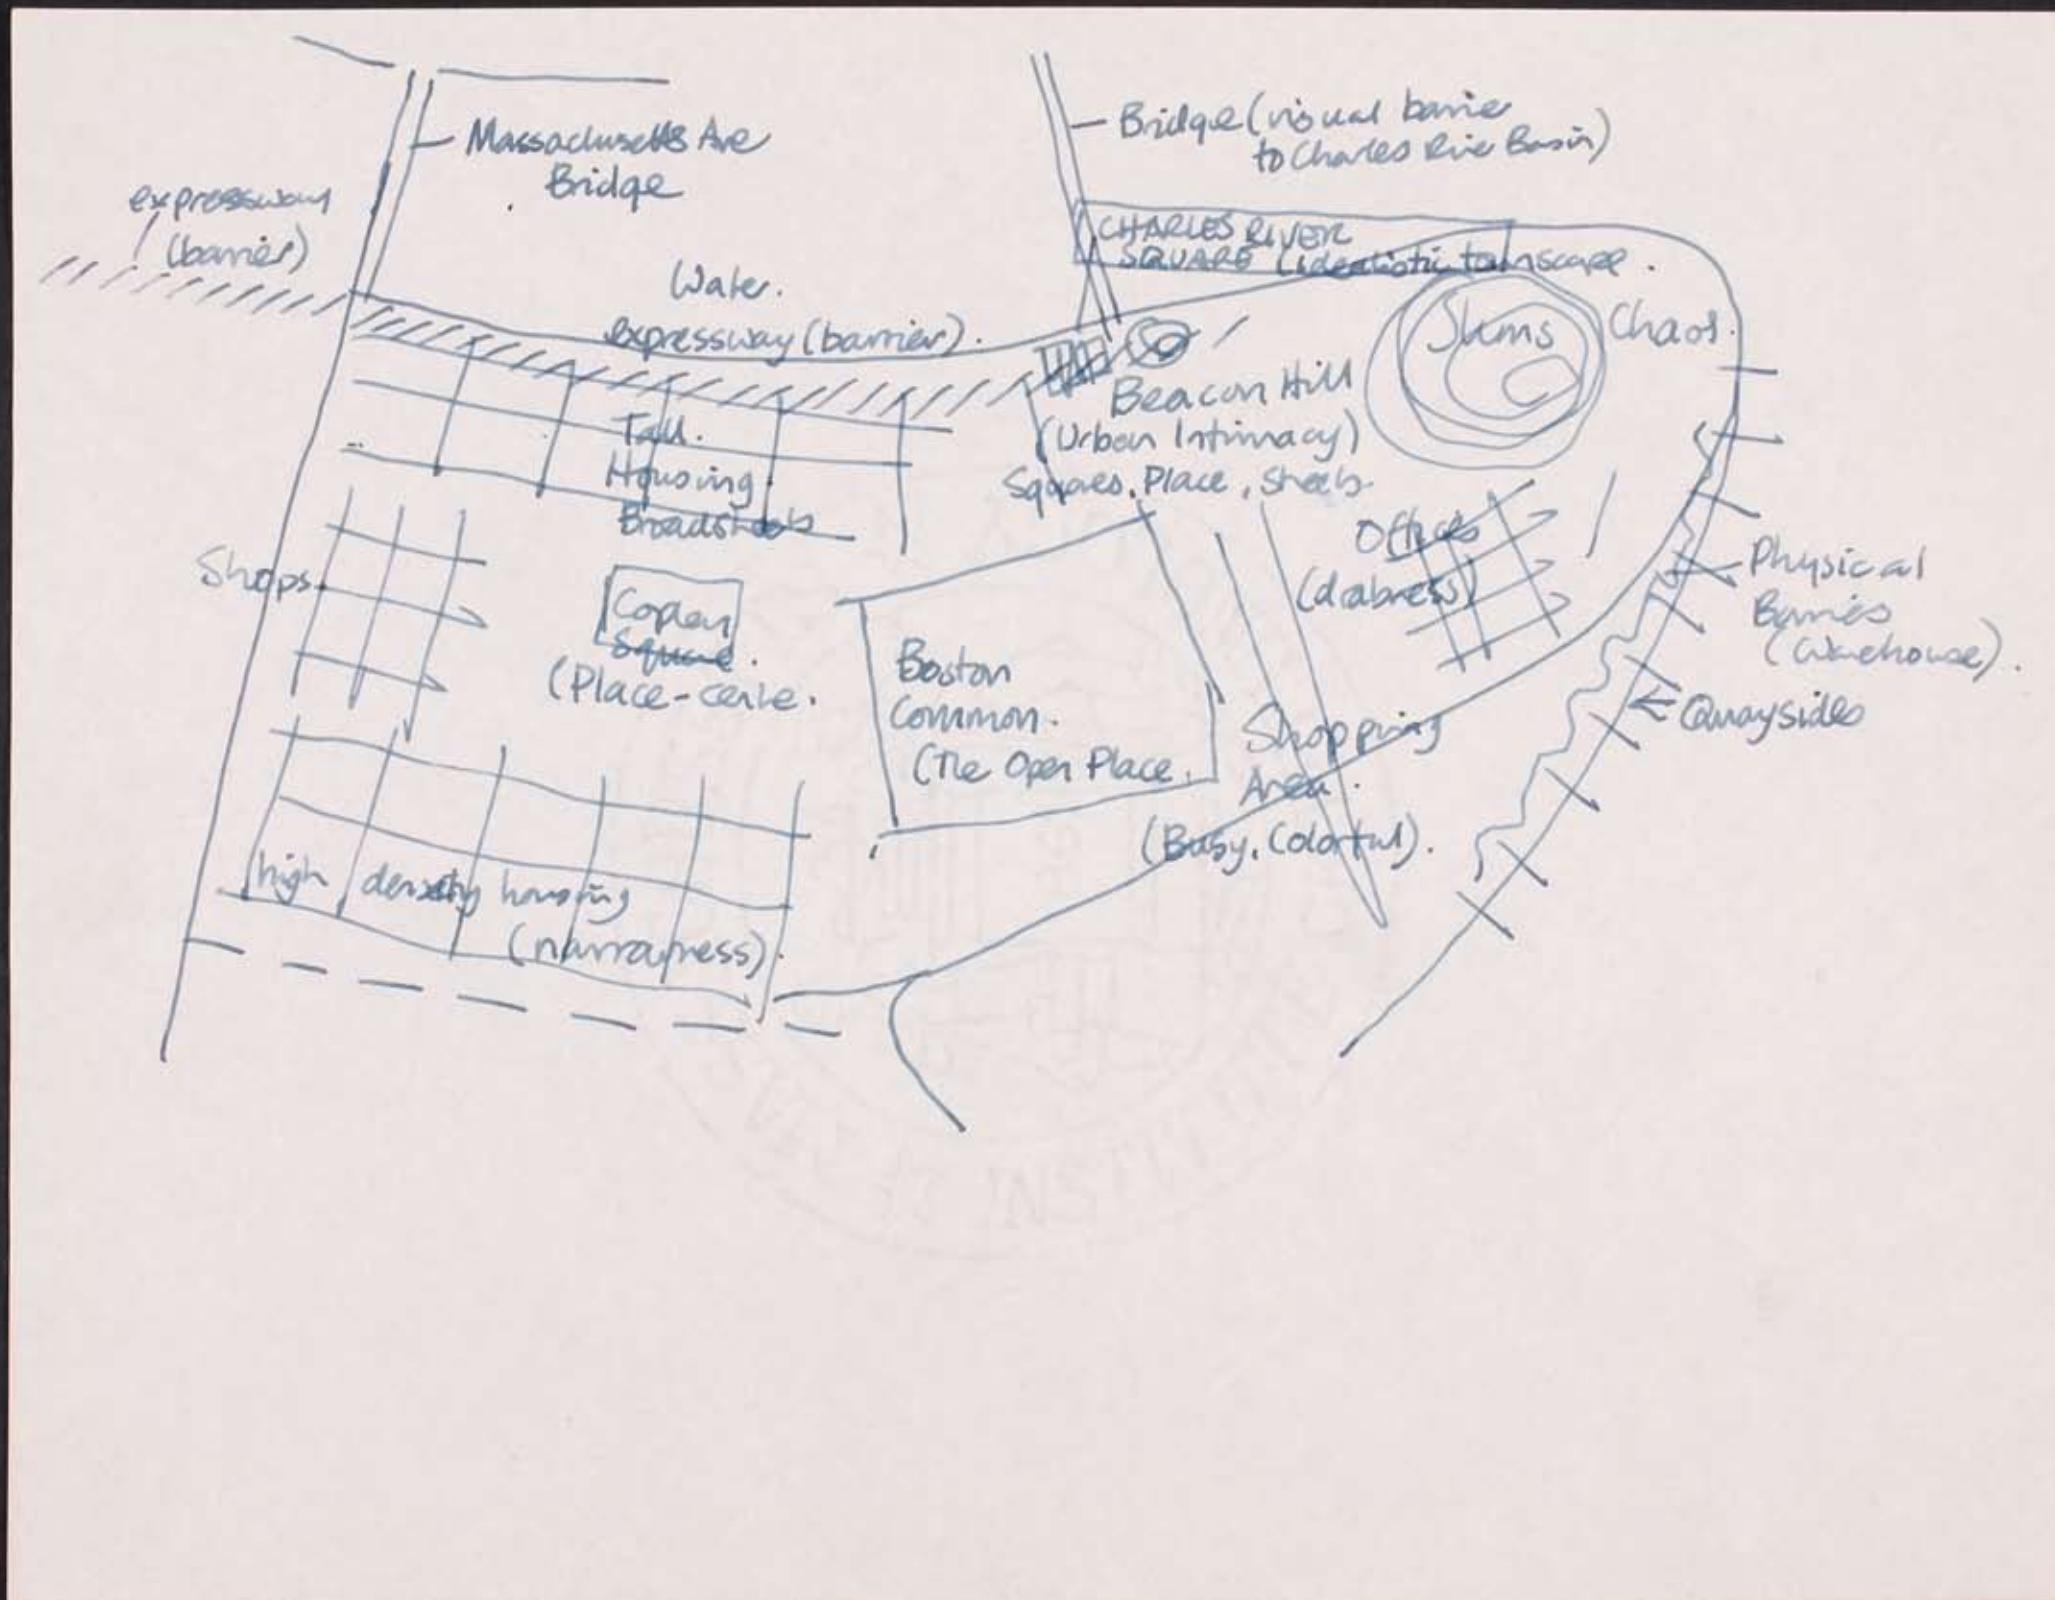 Massachusetts Ave
Bridge
Bridge (visual barrie
to Charles Rive Basin)
expressway
(barrier)
CHARLES RIVER
SQUARE (idealistic townscape.
Water.
expressway (barrier).
Slums
Chaos.
Beacon Hill
(Urban Intimacy)
Squares, Place, Streets.
Tall.
Housing
Broadstreets
Offices
(drabness)
Shops
Physical
Barries
(Warehouse).
Copley
Square.
(Place-centre.
Boston
Common.
(The Open Place.
Quaysides
Shopping
Area.
(Busy, Colorful).
high density housing
(narrowness).